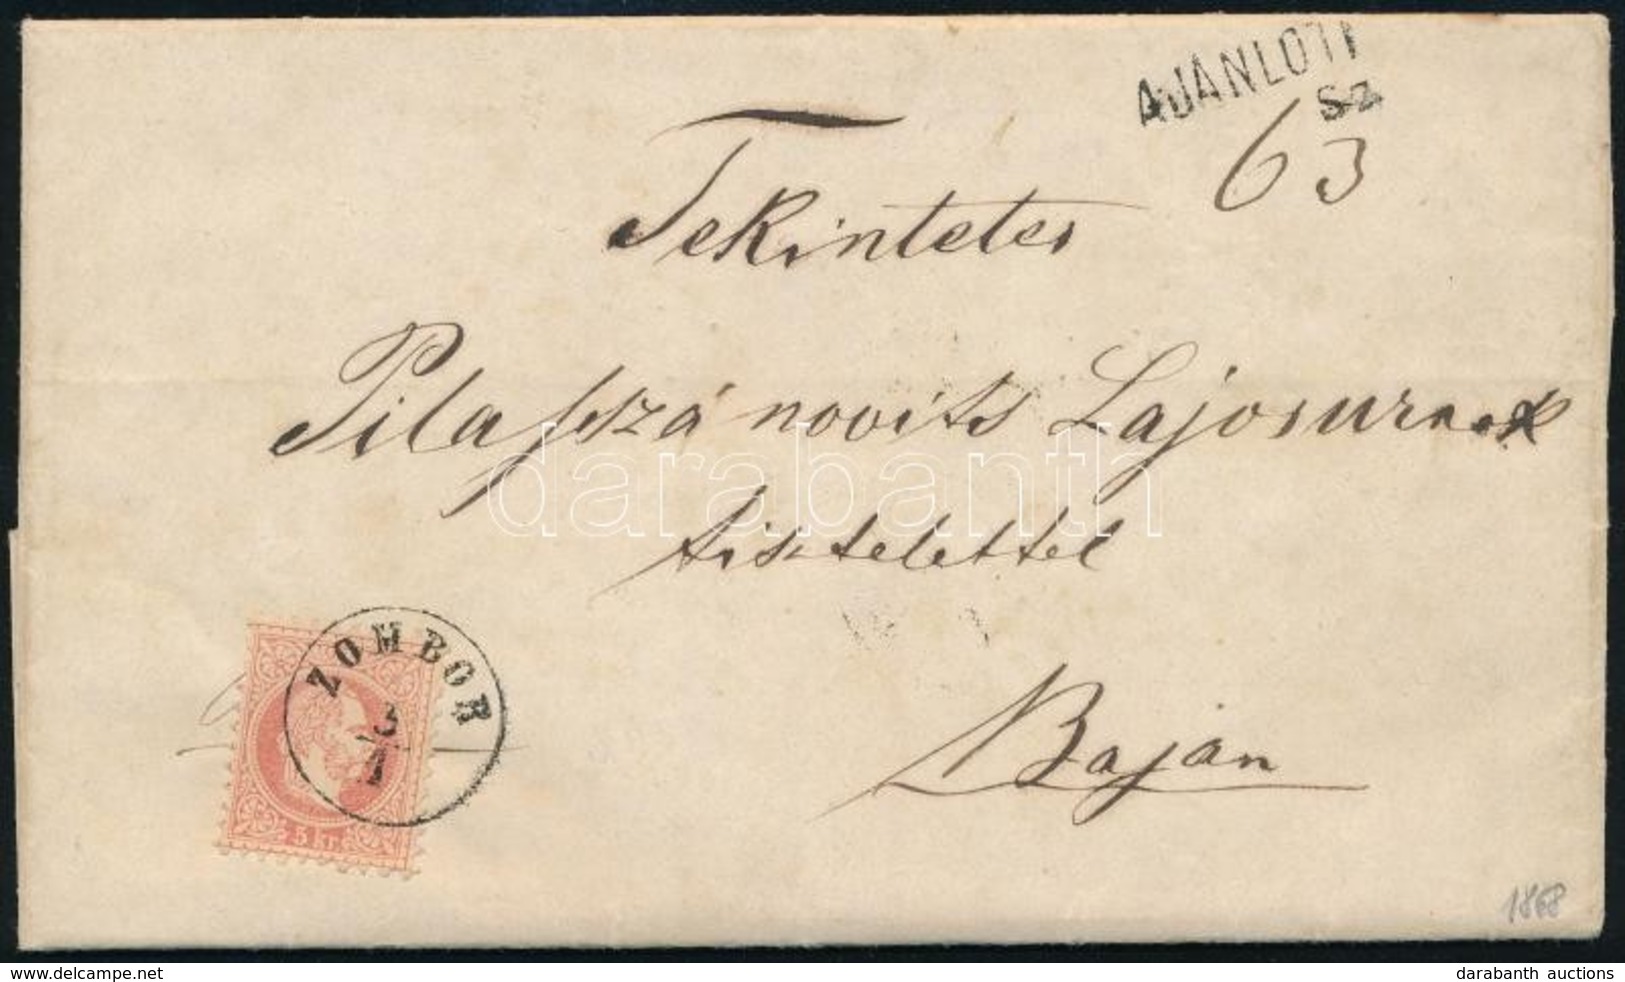 AJÁNLOTT
Sz
63
Tekintetes
Pilaszánovits Lajosurnak
tisztelettel
Baján
ZOMBOR
3
5 kr.
1868
darabanth
delcampe.net
darabanth auctions